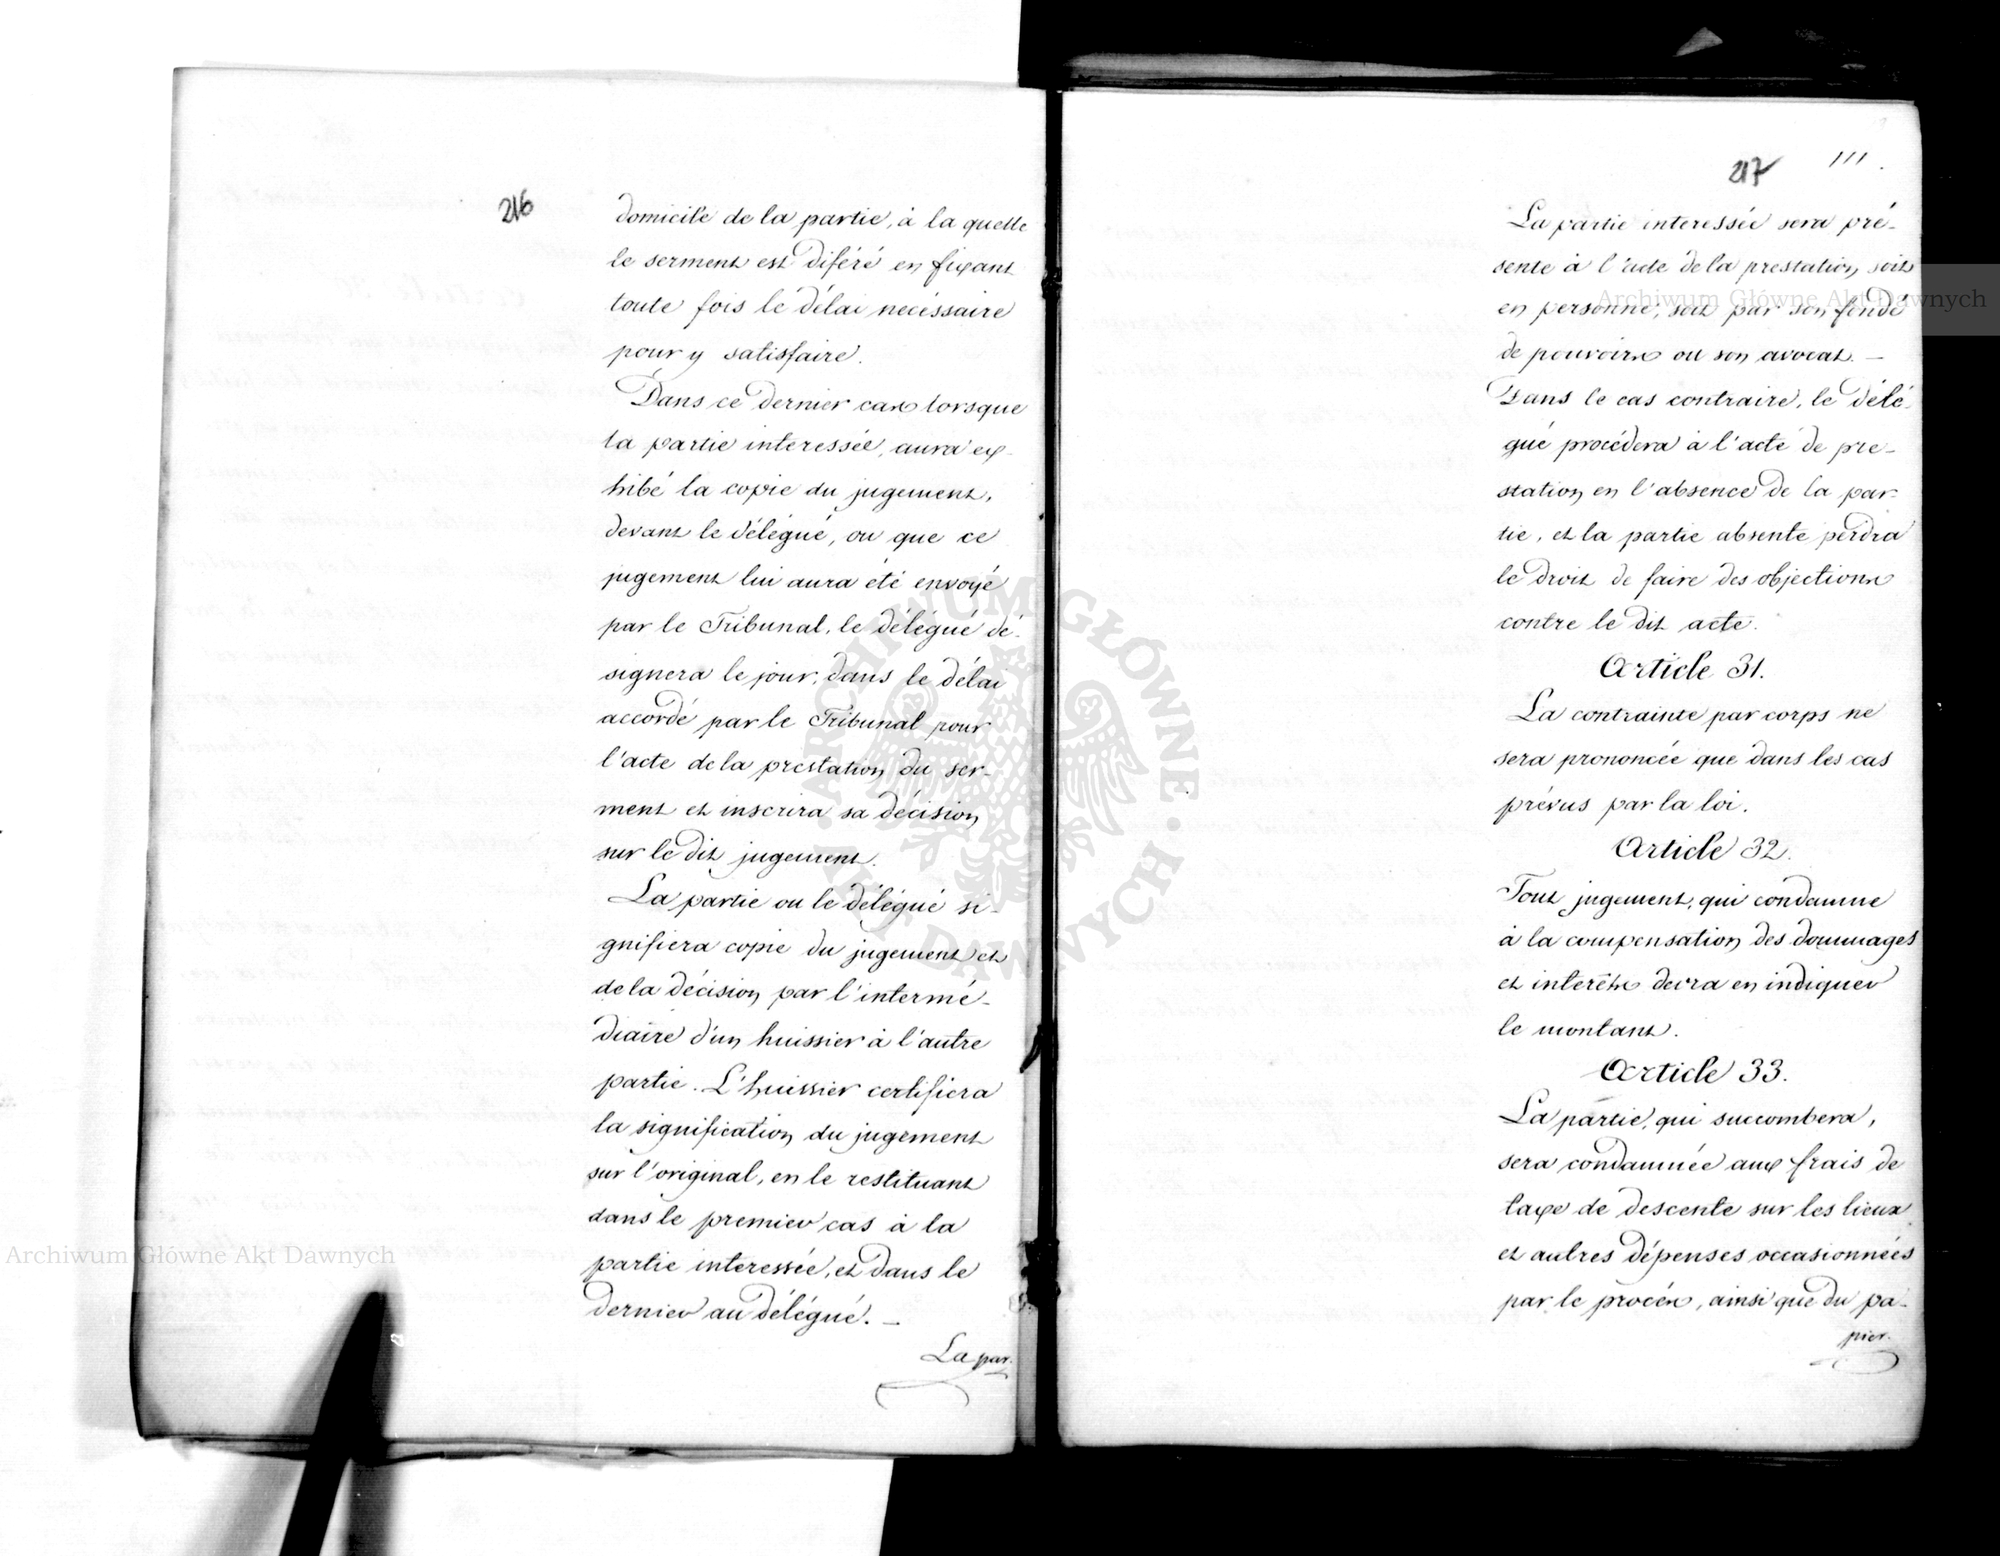 216
domicile de la partie, à la quelle
le serment est diféré en fixant
toute fois le délai necéssaire
pour y satisfaire.
Dans ce dernier cas lorsque
la partie interessée, aura ex-
hibé la copie du jugement,
devant le délégué, ou que ce
jugement lui aura été envoyé
par le Tribunal, le délégué dé-
signera le jour, dans le délai
accordé par le Tribunal pour
l'acte de la prestation du ser-
ment et inscrira sa décision
sur le dit jugement.
La partie ou le délégué si-
gnifiera copie du jugement et
de la décision par l'intermé-
diaire d'un huissier à l'autre
partie. L'huissier certifiera
la signification du jugement
sur l'original, en le restituant
dans le premier cas à la
partie interessée, et dans le
dernier au délégué. —
La par.
217
111.
La partie interessée sera pré-
sente à l'acte de la prestation soit
en personne, soit par son fondé
de pouvoirs ou son avocat. —
Dans le cas contraire, le délé-
gué procédera à l'acte de pre-
station en l'absence de la par-
tie, et la partie absente perdra
le droit de faire des objections
contre le dit acte.
Article 31.
La contrainte par corps ne
sera prononcée que dans les cas
prévus par la loi.
Article 32.
Tout jugement, qui condamne
à la compensation des dommages
et interêts devra en indiquer
le montant.
Article 33.
La partie, qui succombera,
sera condamnée aux frais de
taxe de descente sur les lieux
et autres dépenses occasionnées
par le procés, ainsi que du pa-
pier.
Archiwum Główne Akt Dawnych
Archiwum Główne Akt Dawnych
ARCHIWUM GŁÓWNE AKT DAWNYCH